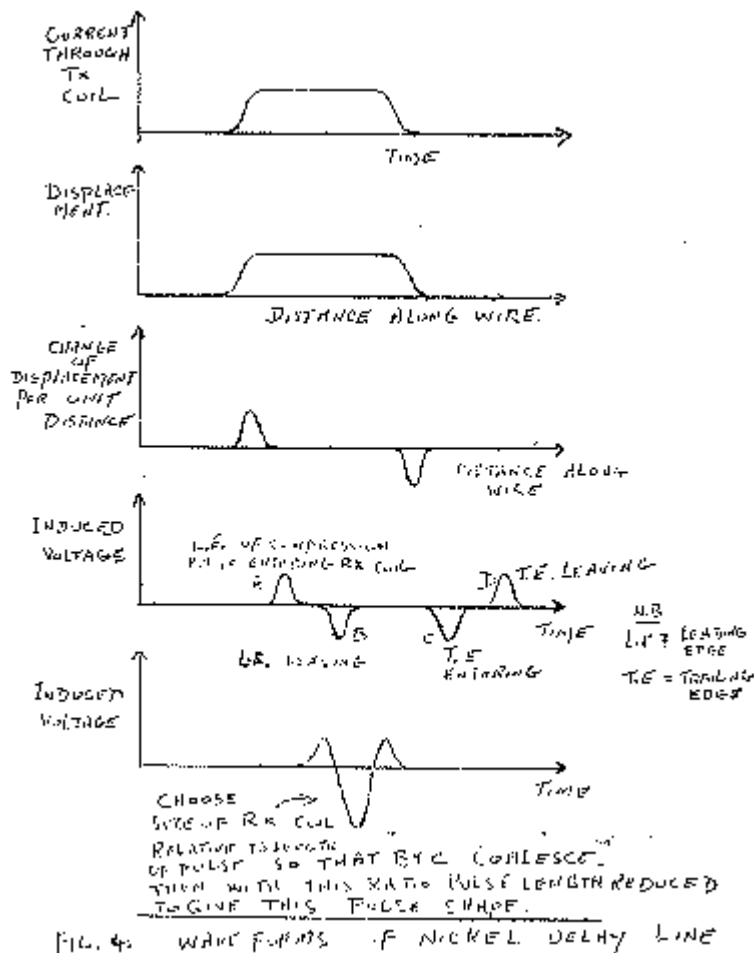 CURRENT
THROUGH
TX
COIL
TIME
DISPLACE
MENT.
DISTANCE ALONG WIRE.
CHANGE
OF
DISPLACEMENT
PER UNIT
DISTANCE
DISTANCE ALONG
WIRE
INDUCED
VOLTAGE
L.E. OF COMPRESSION
ENTERING RX COIL
A
D T.E. LEAVING
B
C
TIME
L.E. LEAVING
T.E
ENTERING
N.B
LEADING
EDGE
T.E = TRAILING
EDGE
INDUCED
VOLTAGE
TIME
CHOOSE
SIZE OF RX COIL
RELATIVE TO LENGTH
OF PULSE SO THAT B & C "COALESCE"
THEN WITH THIS RATIO PULSE LENGTH REDUCED
TO GIVE THIS PULSE SHAPE.
FIG. 4. WAVEFORMS OF NICKEL DELAY LINE